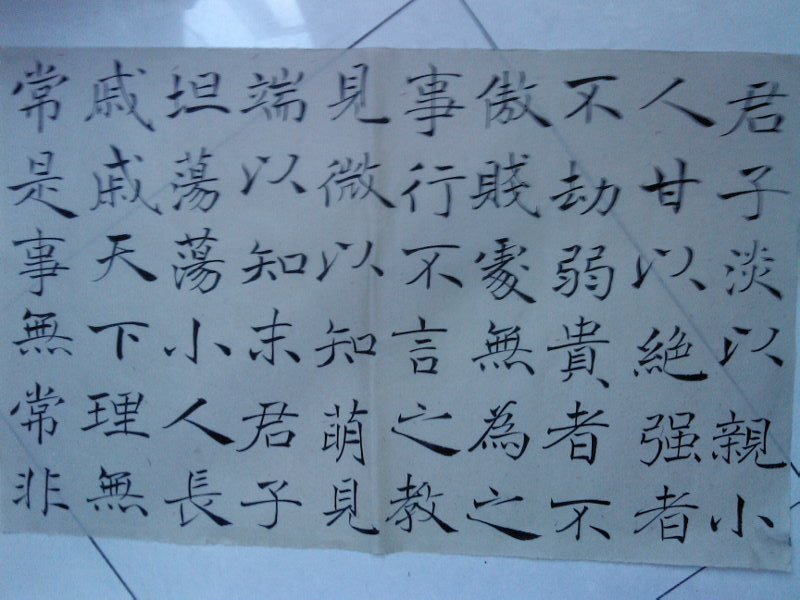 君子淡以親小
人甘以絶强者
不劫弱貴者不
傲賤處無為之
事行不言之教
見微以知萌見
端以知末君子
坦蕩蕩小人長
戚戚天下理無
常是事無常非